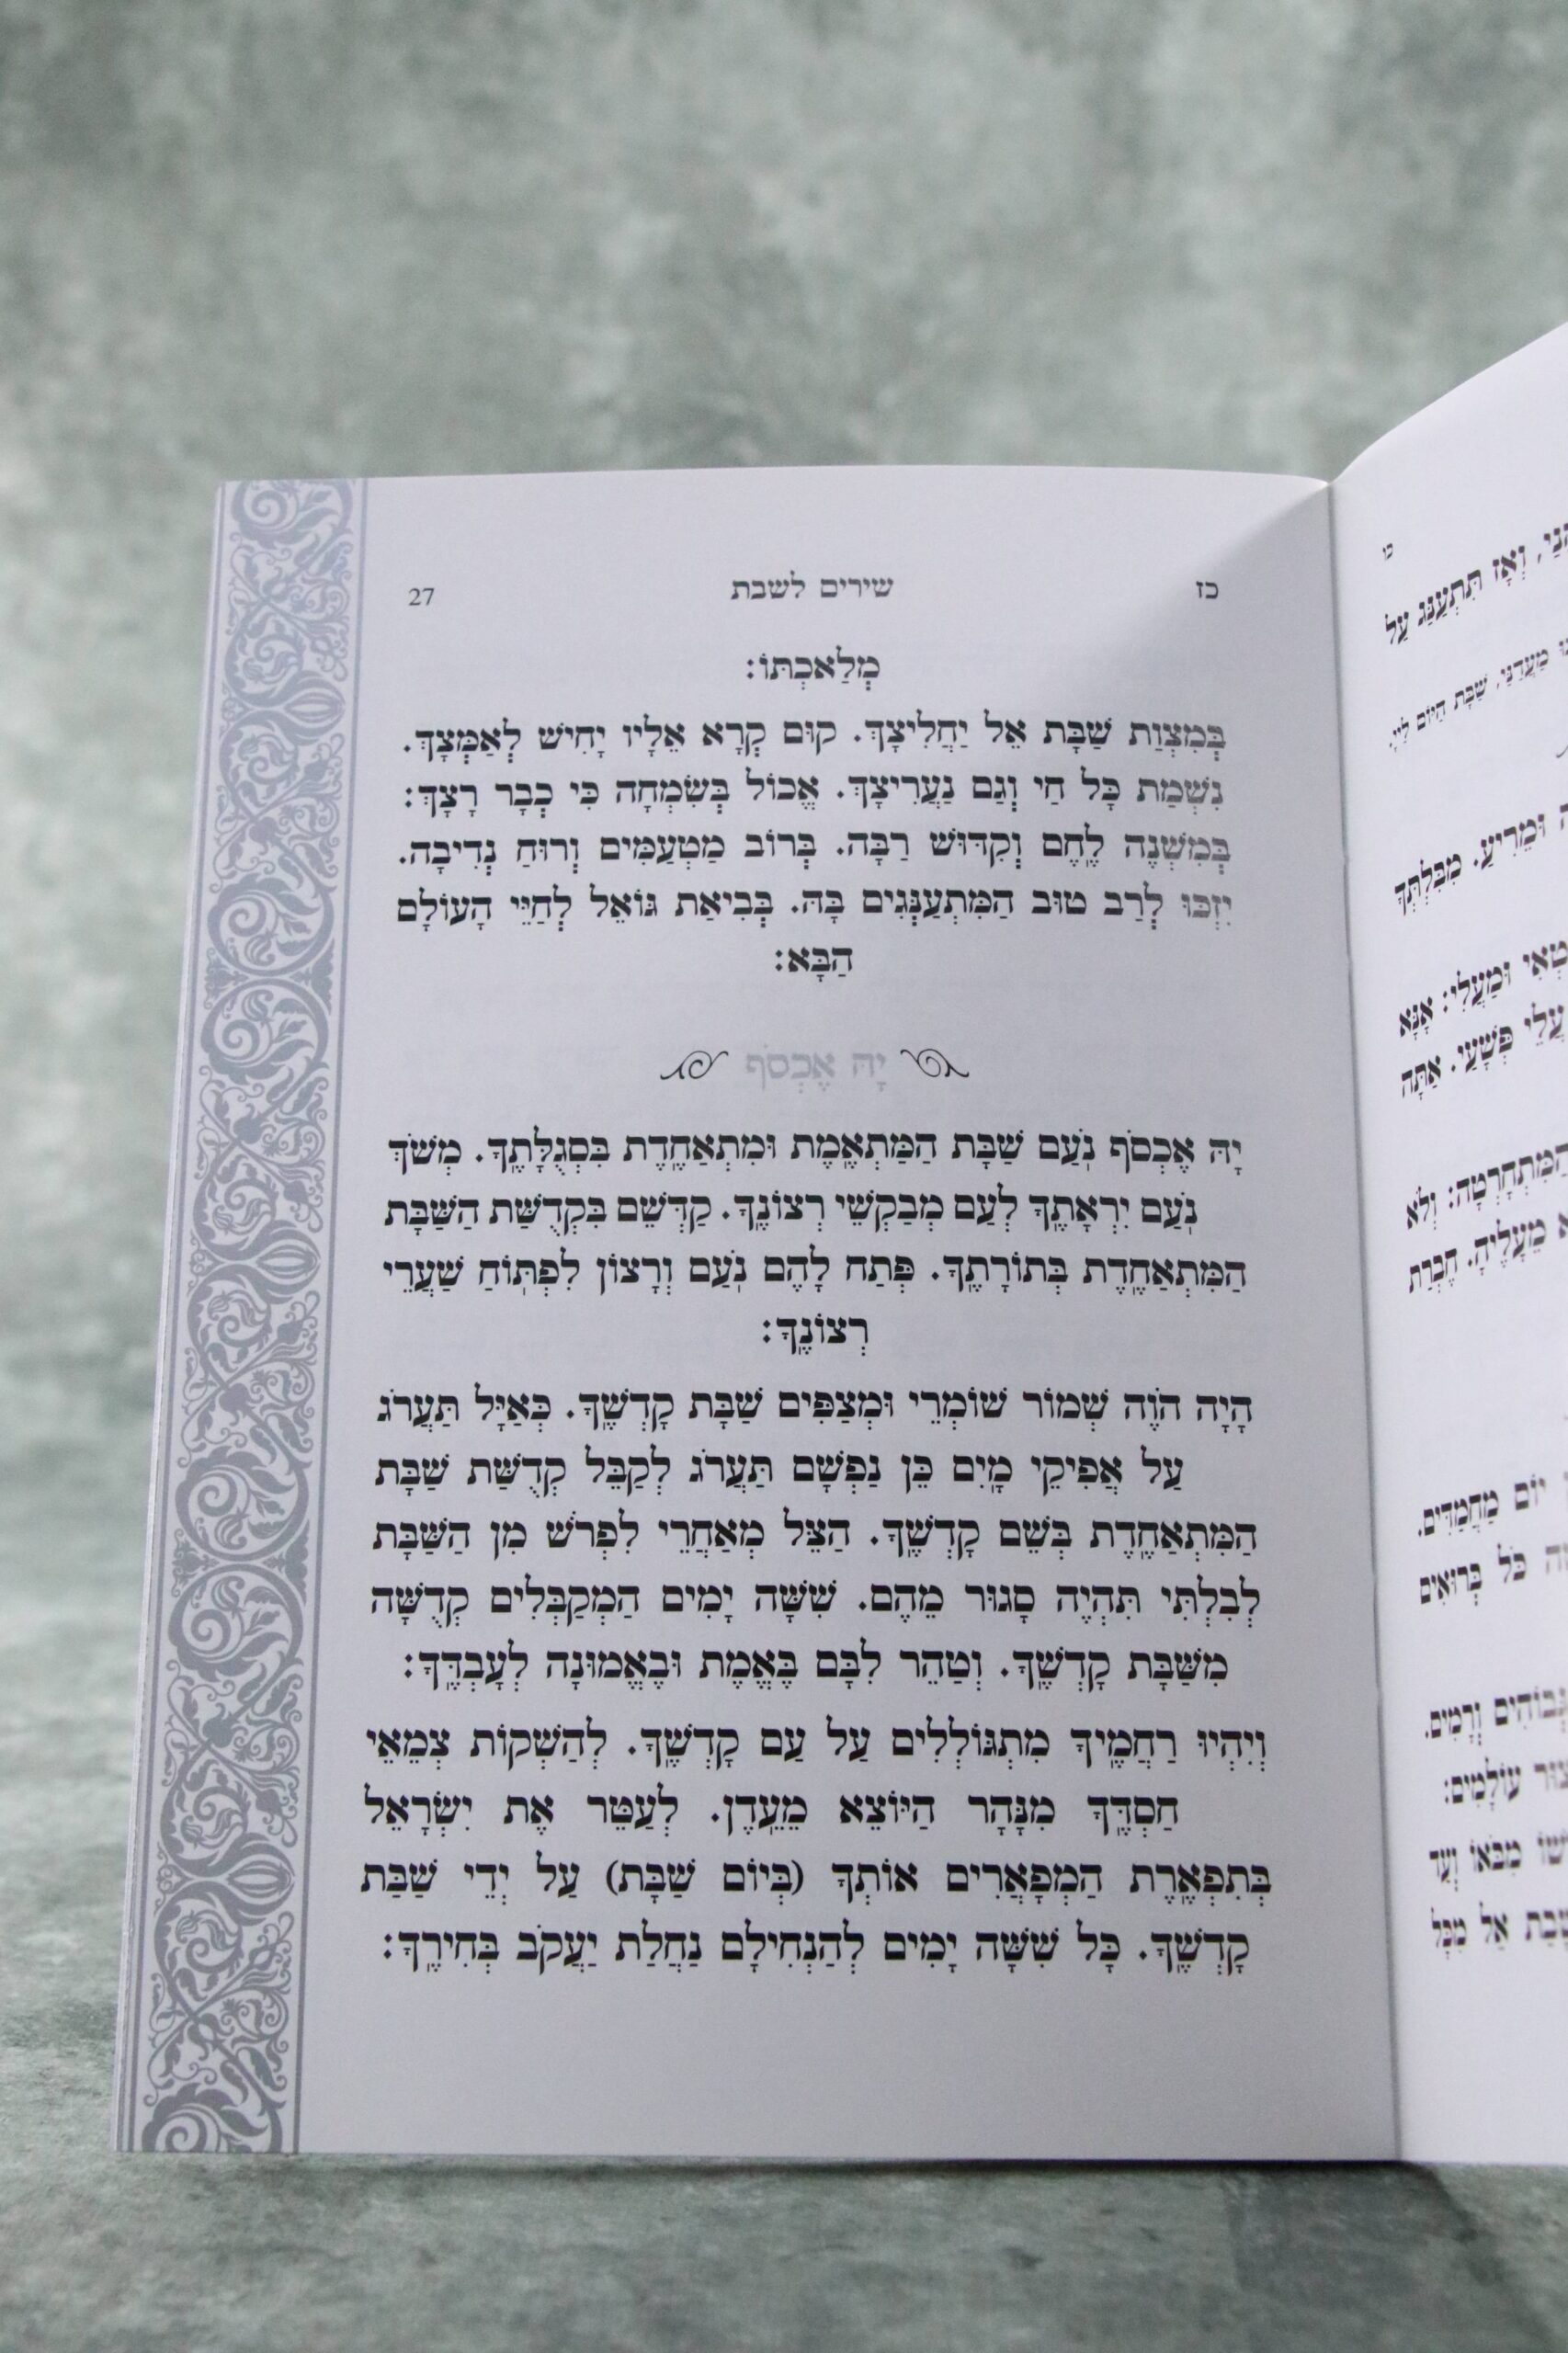 כז שירים לשבת 27
מְלַאכְתּוֹ:
בְּמִצְוַת שַׁבָּת אֵל יַחֲלִיצָךְ. קוּם קְרָא אֵלָיו יָחִישׁ לְאַמְּצָךְ.
נִשְׁמַת כָּל חַי וְגַם נַעֲרִיצָךְ. אֱכוֹל בְּשִׂמְחָה כִּי כְּבָר רָצָךְ:
בְּמִשְׁנֶה לֶחֶם וְקִדּוּשׁ רַבָּה. בְּרוֹב מַטְעַמִּים וְרוּחַ נְדִיבָה.
יִזְכּוּ לְרַב טוּב הַמִּתְעַנְּגִים בָּהּ. בְּבִיאַת גּוֹאֵל לְחַיֵּי הָעוֹלָם
הַבָּא:
יָהּ אֶכְסֹף
יָהּ אֶכְסֹף נֹעַם שַׁבָּת הַמַּתְאֶמֶת וּמִתְאַחֶדֶת בִּסְגֻלָּתֶךָ. מְשֹׁךְ
נֹעַם יִרְאָתֶךָ לְעַם מְבַקְשֵׁי רְצוֹנֶךָ. קַדְּשֵׁם בִּקְדֻשַּׁת הַשַּׁבָּת
הַמִּתְאַחֶדֶת בְּתוֹרָתֶךָ. פְּתַח לָהֶם נֹעַם וְרָצוֹן לִפְתּוֹחַ שַׁעֲרֵי
רְצוֹנֶךָ:
הָיָה הֹוֶה שְׁמוֹר שׁוֹמְרֵי וּמְצַפִּים שַׁבָּת קָדְשֶׁךָ. כְּאַיָּל תַּעֲרֹג
עַל אֲפִיקֵי מָיִם כֵּן נַפְשָׁם תַּעֲרֹג לְקַבֵּל קְדֻשַּׁת שַׁבָּת
הַמִּתְאַחֶדֶת בְּשֵׁם קָדְשֶׁךָ. הַצֵּל מְאַחֲרֵי לִפְרֹשׁ מִן הַשַּׁבָּת
לְבִלְתִּי תִּהְיֶה סָגוּר מֵהֶם. שִׁשָּׁה יָמִים הַמְקַבְּלִים קְדֻשָּׁה
מִשַּׁבָּת קָדְשֶׁךָ. וְטַהֵר לִבָּם בֶּאֱמֶת וּבֶאֱמוּנָה לְעָבְדֶּךָ:
וְיִהְיוּ רַחֲמֶיךָ מִתְגּוֹלְלִים עַל עַם קָדְשֶׁךָ. לְהַשְׁקוֹת צְמֵאֵי
חַסְדֶּךָ מִנָּהָר הַיּוֹצֵא מֵעֵדֶן. לְעַטֵּר אֶת יִשְׂרָאֵל
בְּתִפְאֶרֶת הַמְפָאֲרִים אוֹתְךָ (בְּיוֹם שַׁבָּת) עַל יְדֵי שַׁבַּת
קָדְשֶׁךָ. כָּל שִׁשָּׁה יָמִים לְהַנְחִילָם נַחֲלַת יַעֲקֹב בְּחִירֶךָ:
כו
וְאָז תִּתְעַנַּג עַל
מַעֲדַנַּי, שַׁבָּת הַיּוֹם לַיְיָ.
וּמֵרִיעַ. מִבִּלְתְּךָ
וּמַעֲלִי: אָנָּא
עֲלֵי פְּשָׁעַי. אַתָּה
הַמִּתְחָרְטָה: וְלֹא
מֵעָלֶיהָ. חֶבְרַת
יוֹם מַחֲמַדִּים.
כֹּל בְּרוּאִים
גְּבוֹהִים וְרָמִים.
צוּר עוֹלָמִים:
מִבֹּאוֹ וְעַד
שָׁבַת אֵל מִכָּל